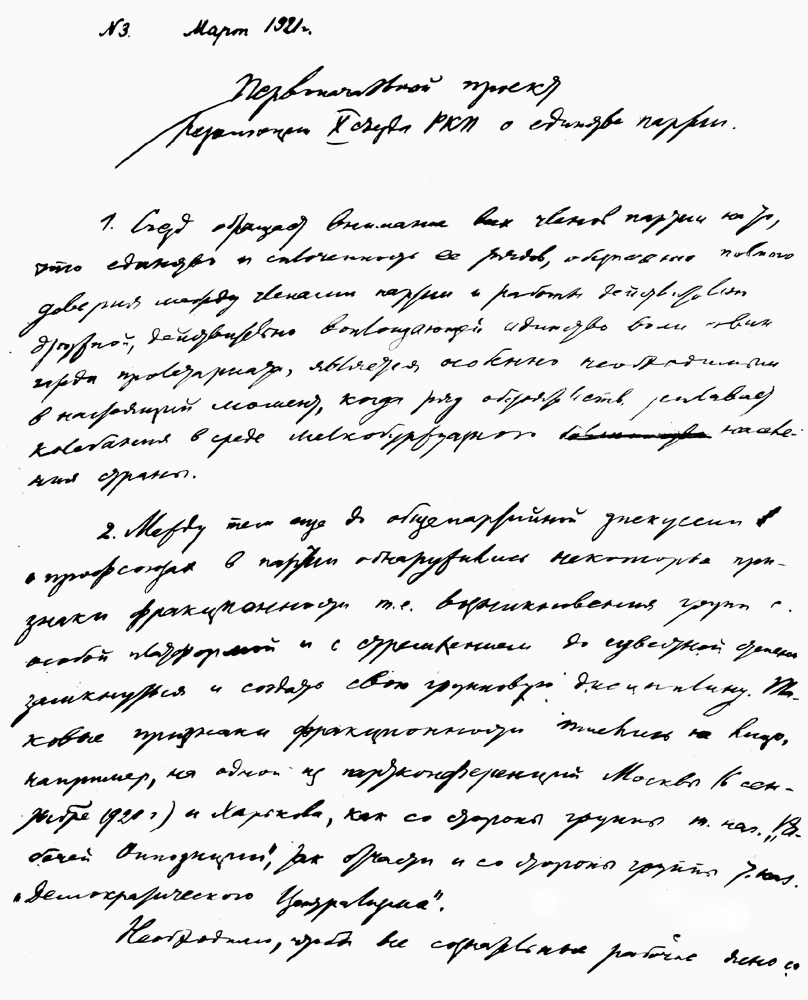 №3. Март 1921г.
Первоначальный проект
Резолюции X съезда РКП о единстве партии.
1. Съезд обращает внимание всех членов партии на то,
что единство и сплоченность ее рядов, обеспечение полного
доверия между членами партии и работы действительно
дружной, действительно воплощающей единство воли аван
гарда пролетариата, является особенно необходимым
в настоящий момент, когда ряд обстоятельств усиливает
колебания в среде мелкобуржуазного населе-
ния страны.
2. Между тем еще до общепартийной дискуссии
о профсоюзах в партии обнаружились некоторые при-
знаки фракционности т.е. возникновения групп с
особой платформой и с стремлением до известной степени
замкнуться и создать свою групповую дисциплину. Та-
ковые признаки фракционности имелись на лицо,
например, на одной из партконференций Москвы (в сен-
ябре 1920 г) и Харькова, как со стороны группы т. наз. „Ра-
бочей Оппозиции“, так отчасти и со стороны группы т. наз.
„Демократического Централизма“.
Необходимо, чтобы все сознательные рабочие ясно со